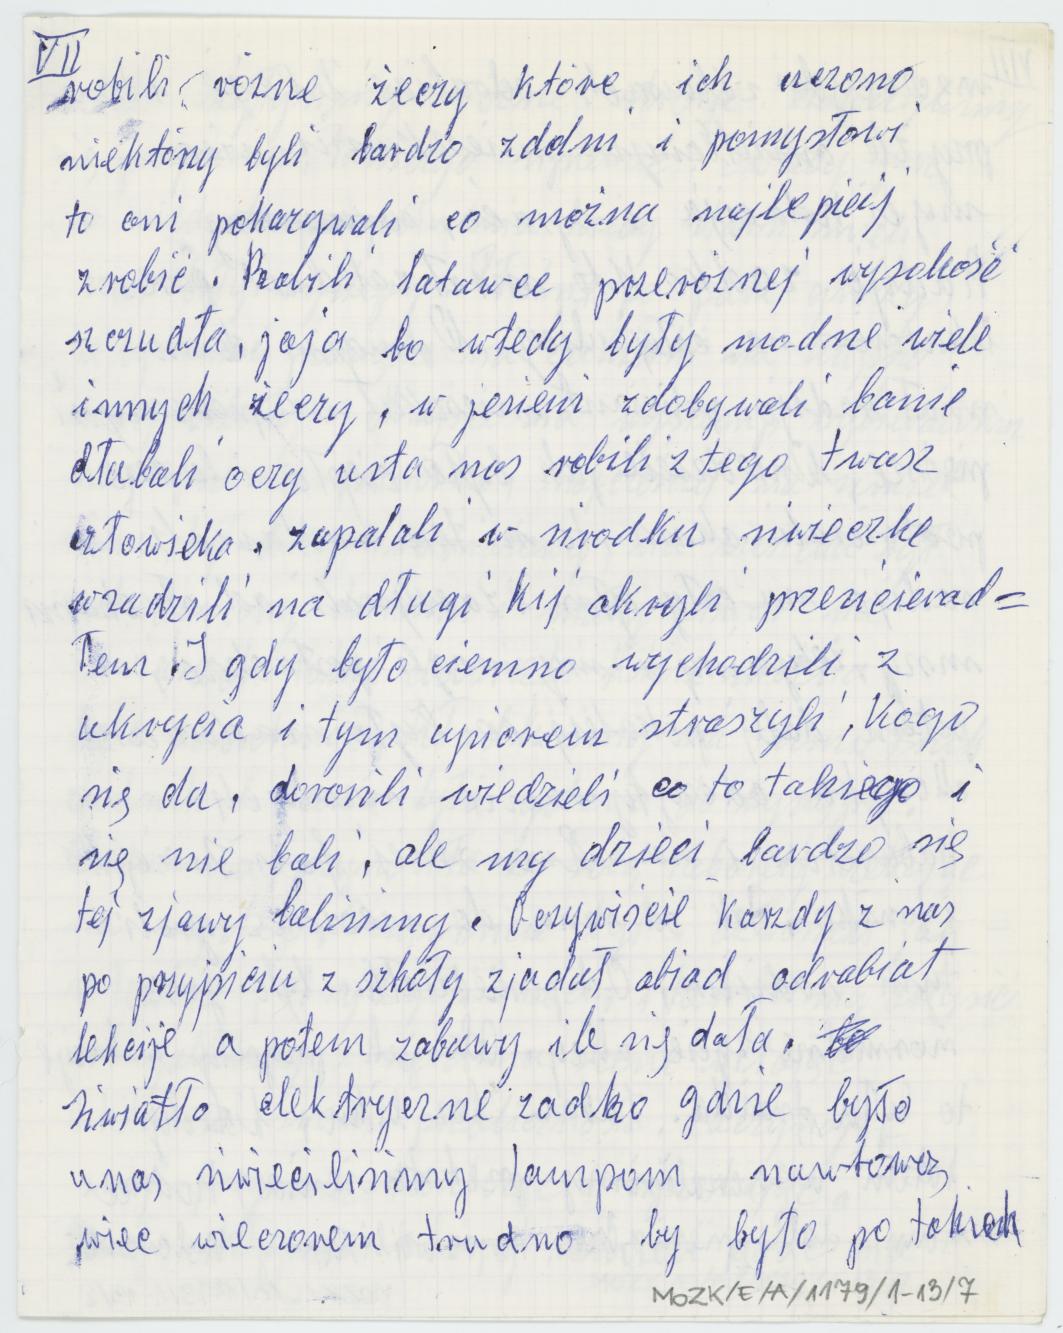 VII
robili różne żeczy które ich uczono
niektórzy byli bardzo zdolni i pomysłowi
to oni pokazywali co można najlepiej
zrobić. Robili latawce przeróżnej wysokość
szczudła, jaja bo wtedy były modne wiele
innych żeczy, w jesieni zdobywali banie
dłubali oczy usta nos robili z tego twasz
człowieka. zapalali w środku świeczke
wsadzili na długi kij okryli prześcierad=
łem. I gdy było ciemno wychodzili z
ukrycia i tym upiorem straszyli, kogo
się da, dorośli wiedzieli co to takiego i
się nie bali, ale my dzieci bardzo się
tej zjawy baliśmy. Oczywiście każdy z nas
po przyjściu z szkoły zjadał obiad odrabiał
lekcije a potem zabawy ile się dała.
światło elektryczne zadko gdzie było
u nas świeciliśmy lampom nawtową
więc wieczorem trudno by było po takich
MOZK/E/A/1179/1-13/7